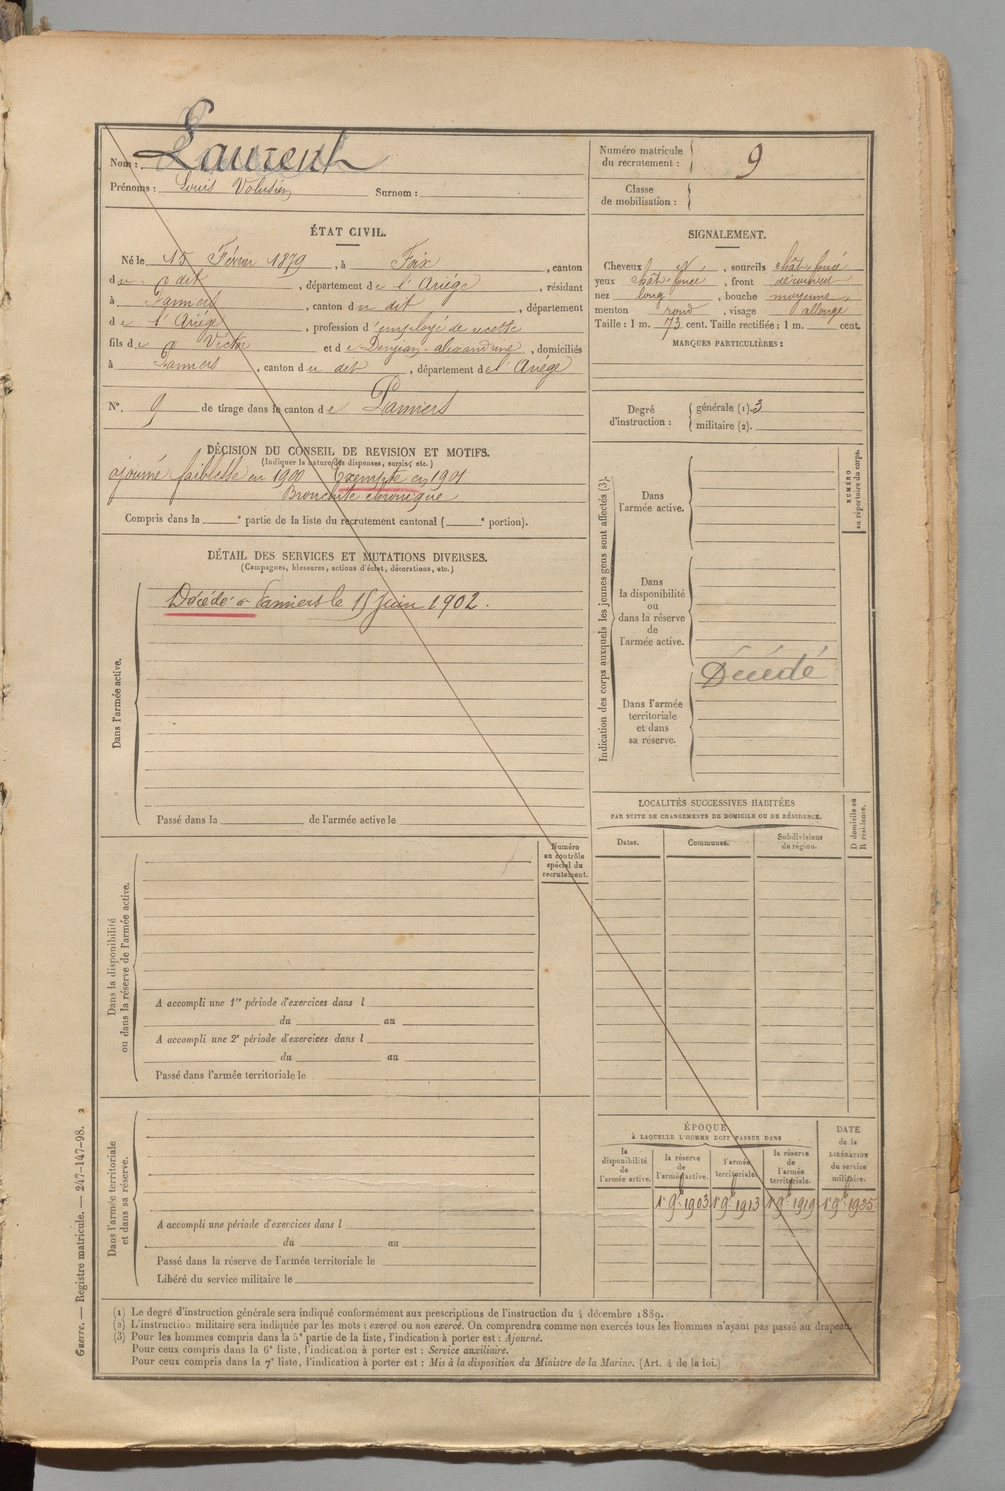 Nom : Laurent
Prénoms : Louis Volusien Surnom :
Numéro matricule du recrutement : 9
Classe de mobilisation :
ÉTAT CIVIL.
Né le 15 Février 1879, à Foix, canton
du dit, département de l'Ariége, résidant
à Pamiers, canton du dit, département
de l'Ariége, profession d'employé de recette
fils de Victor et de alexandrine, domiciliés
à Pamiers, canton du dit, département del'Ariége
N°. 9 de tirage dans le canton de Pamiers
DÉCISION DU CONSEIL DE REVISION ET MOTIFS.
(Indiquer la nature des dispenses, sursis, etc.)
ajourné faiblesse en 1900 Exempté en 1901
Bronchite chronique
Compris dans la e partie de la liste du recrutement cantonal ( e portion).
DÉTAIL DES SERVICES ET MUTATIONS DIVERSES.
(Campagnes, blessures, actions d'éclat, décorations, etc.)
Dans l'armée active.
Décédé à Pamiers le 15 Juin 1902.
Passé dans la de l'armée active le
Numéro au contrôle spécial du recrutement.
Dans la disponibilité ou dans la réserve de l'armée active.
A accompli une 1re période d'exercices dans l
du au
A accompli une 2e période d'exercices dans l
du au
Passé dans l'armée territoriale le
Dans l'armée territoriale et dans sa réserve.
A accompli une période d'exercices dans l
du au
Passé dans la réserve de l'armée territoriale le
Libéré du service militaire le
SIGNALEMENT.
Cheveux N, sourcils chât. foncé
yeux chât. foncé, front découvert
nez long, bouche moyenne
menton rond, visage allongé
Taille : 1 m. 73 cent. Taille rectifiée : 1 m. cent.
MARQUES PARTICULIÈRES :
Degré d'instruction : générale (1). 3
militaire (2).
Indication des corps auxquels les jeunes gens sont affectés (3).
NUMÉRO au répertoire du corps.
Dans l'armée active.
Dans la disponibilité ou dans la réserve de l'armée active.
Décédé
Dans l'armée territoriale et dans sa réserve.
LOCALITÉS SUCCESSIVES HABITÉES
PAR SUITE DE CHANGEMENTS DE DOMICILE OU DE RÉSIDENCE.
Dates. Communes. Subdivisions de région. D domicile ou R résidence.
ÉPOQUE
À LAQUELLE L'HOMME DOIT PASSER DANS
la disponibilité de l'armée active.
la réserve de l'armée active.
l'armée territoriale.
la réserve de l'armée territoriale.
DATE de la LIBÉRATION du service militaire.
1er 9bre 1903 1er 9bre 1913 1er 9bre 1919 1er 9bre 1925
(1) Le degré d'instruction générale sera indiqué conformément aux prescriptions de l'instruction du 4 décembre 1889.
(2) L'instruction militaire sera indiquée par les mots : exercé ou non exercé. On comprendra comme non exercés tous les hommes n'ayant pas passé au drapeau.
(3) Pour les hommes compris dans la 5e partie de la liste, l'indication à porter est : Ajourné.
Pour ceux compris dans la 6e liste, l'indication à porter est : Service auxiliaire.
Pour ceux compris dans la 7e liste, l'indication à porter est : Mis à la disposition du Ministre de la Marine. (Art. 4 de la loi.)
Guerre. — Registre matricule. — 247-147-98. 2